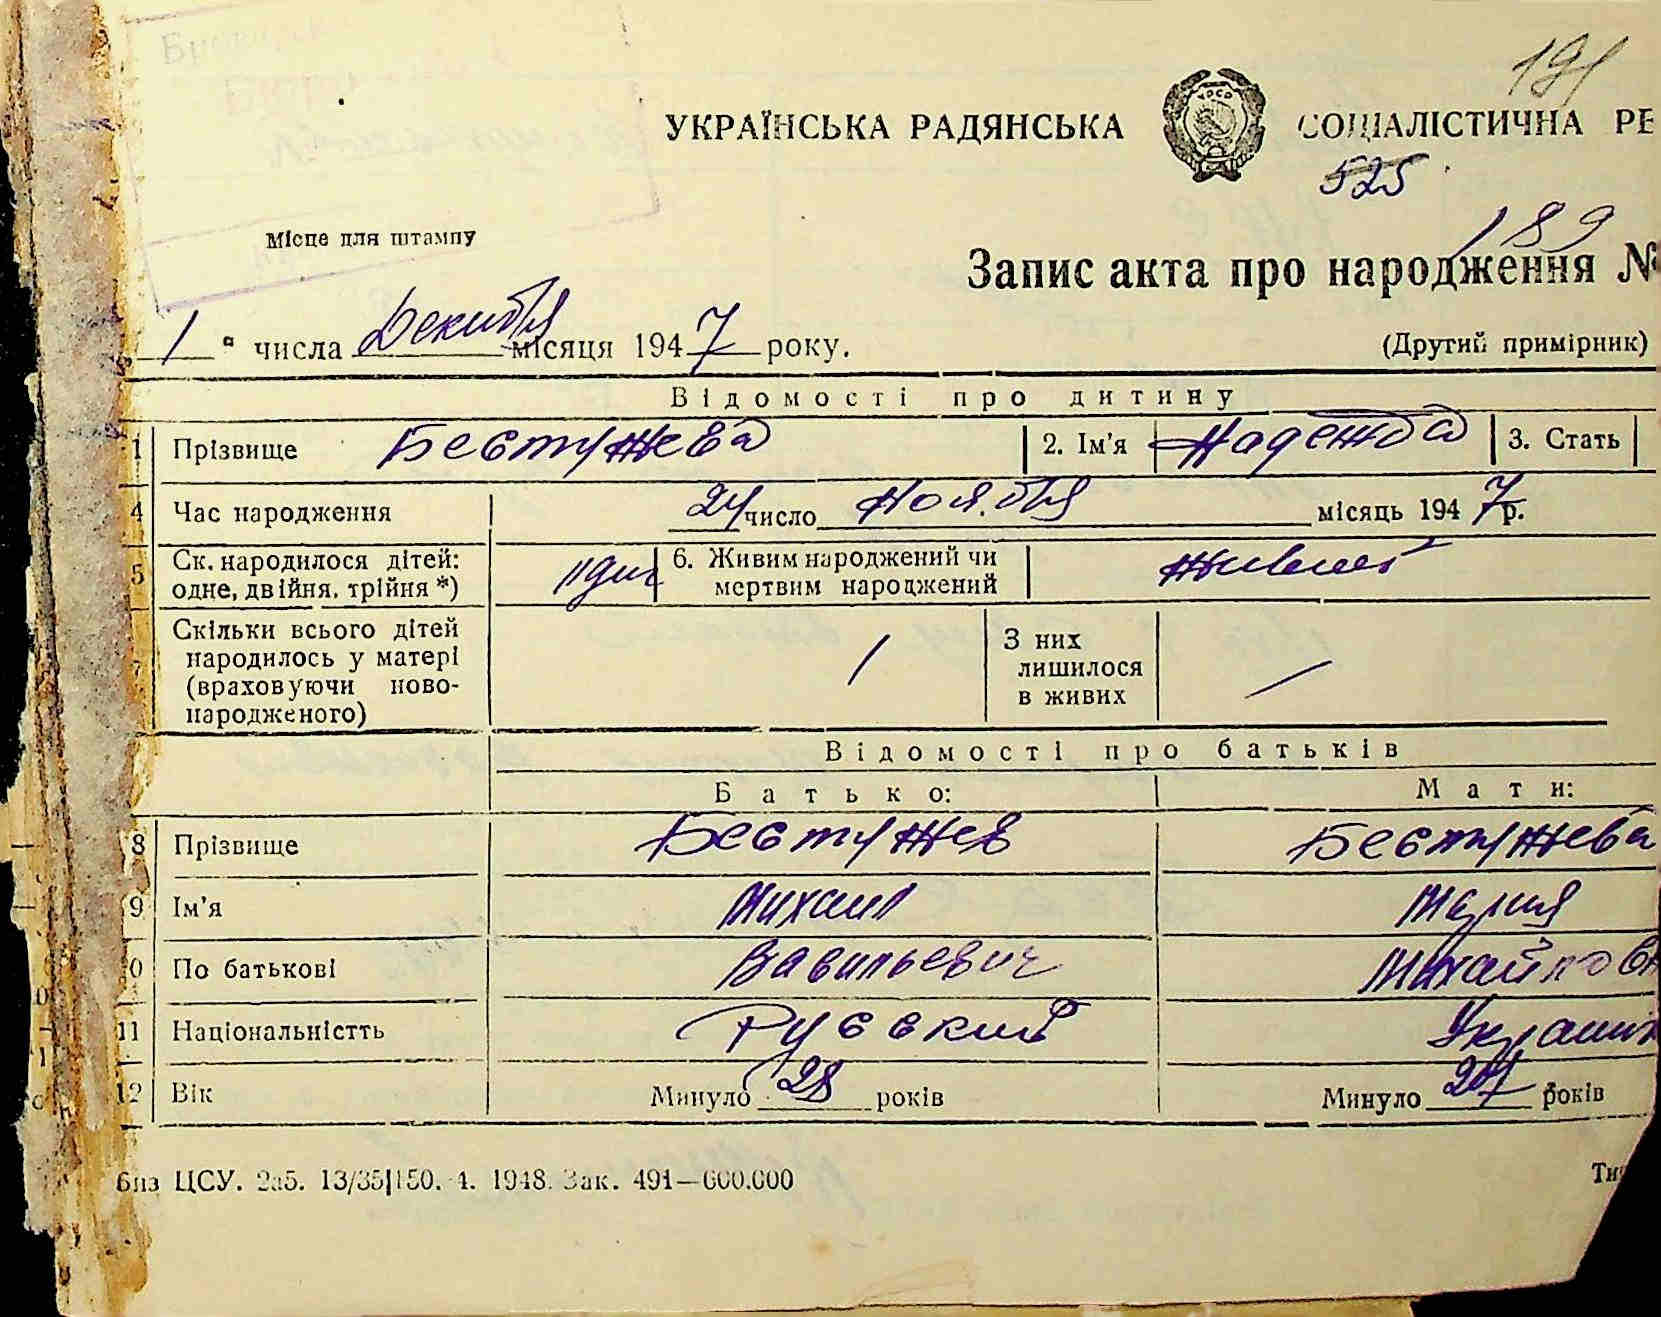 191
УКРАЇНСЬКА РАДЯНСЬКА СОЦІАЛІСТИЧНА РЕ
УРСР
525
Місце для штампу
189
Запис акта про народження №
1 " числа Декабря місяця 1947 року.
(Другий примірник)
Відомості про дитину
1 Прізвище Бестужева 2. Ім'я Надежда 3. Стать
4 Час народження 24 число Ноября місяць 1947 р.
5 Ск. народилося дітей: одне, двійня, трійня *) один 6. Живим народжений чи мертвим народжений живым
7 Скільки всього дітей народилось у матері (враховуючи новонародженого) 1 З них лишилося в живих /
Відомості про батьків
Батько: Мати:
8 Прізвище Бестужев Бестужева
9 Ім'я Михаил Мария
0 По батькові Васильевич Михайловн
11 Національністть Русский Украин
12 Вік Минуло 28 років Минуло років
ЦСУ. 2а5. 13/35|150. 4. 1948. Зак. 491—600.000
Ти